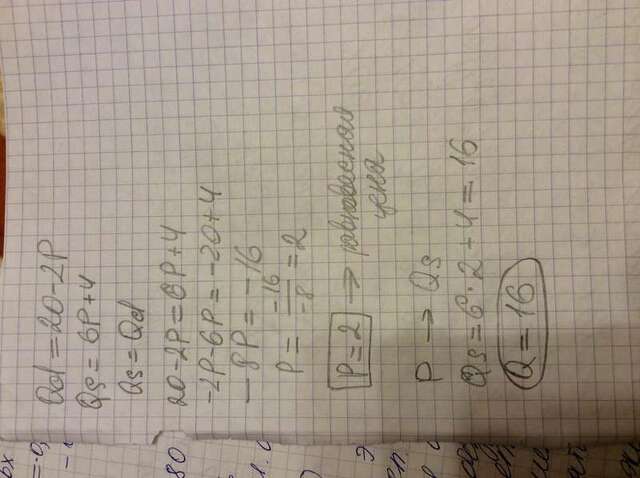 Qd = 20 - 2P
Qs = 6P + 4
Qs = Qd
20 - 2P = 6P + 4
-2P - 6P = -20 + 4
-8P = -16
P = -16/-8 = 2
P = 2 → равновесная
цена
P → Qs
Qs = 6 · 2 + 4 = 16
Q = 16
80